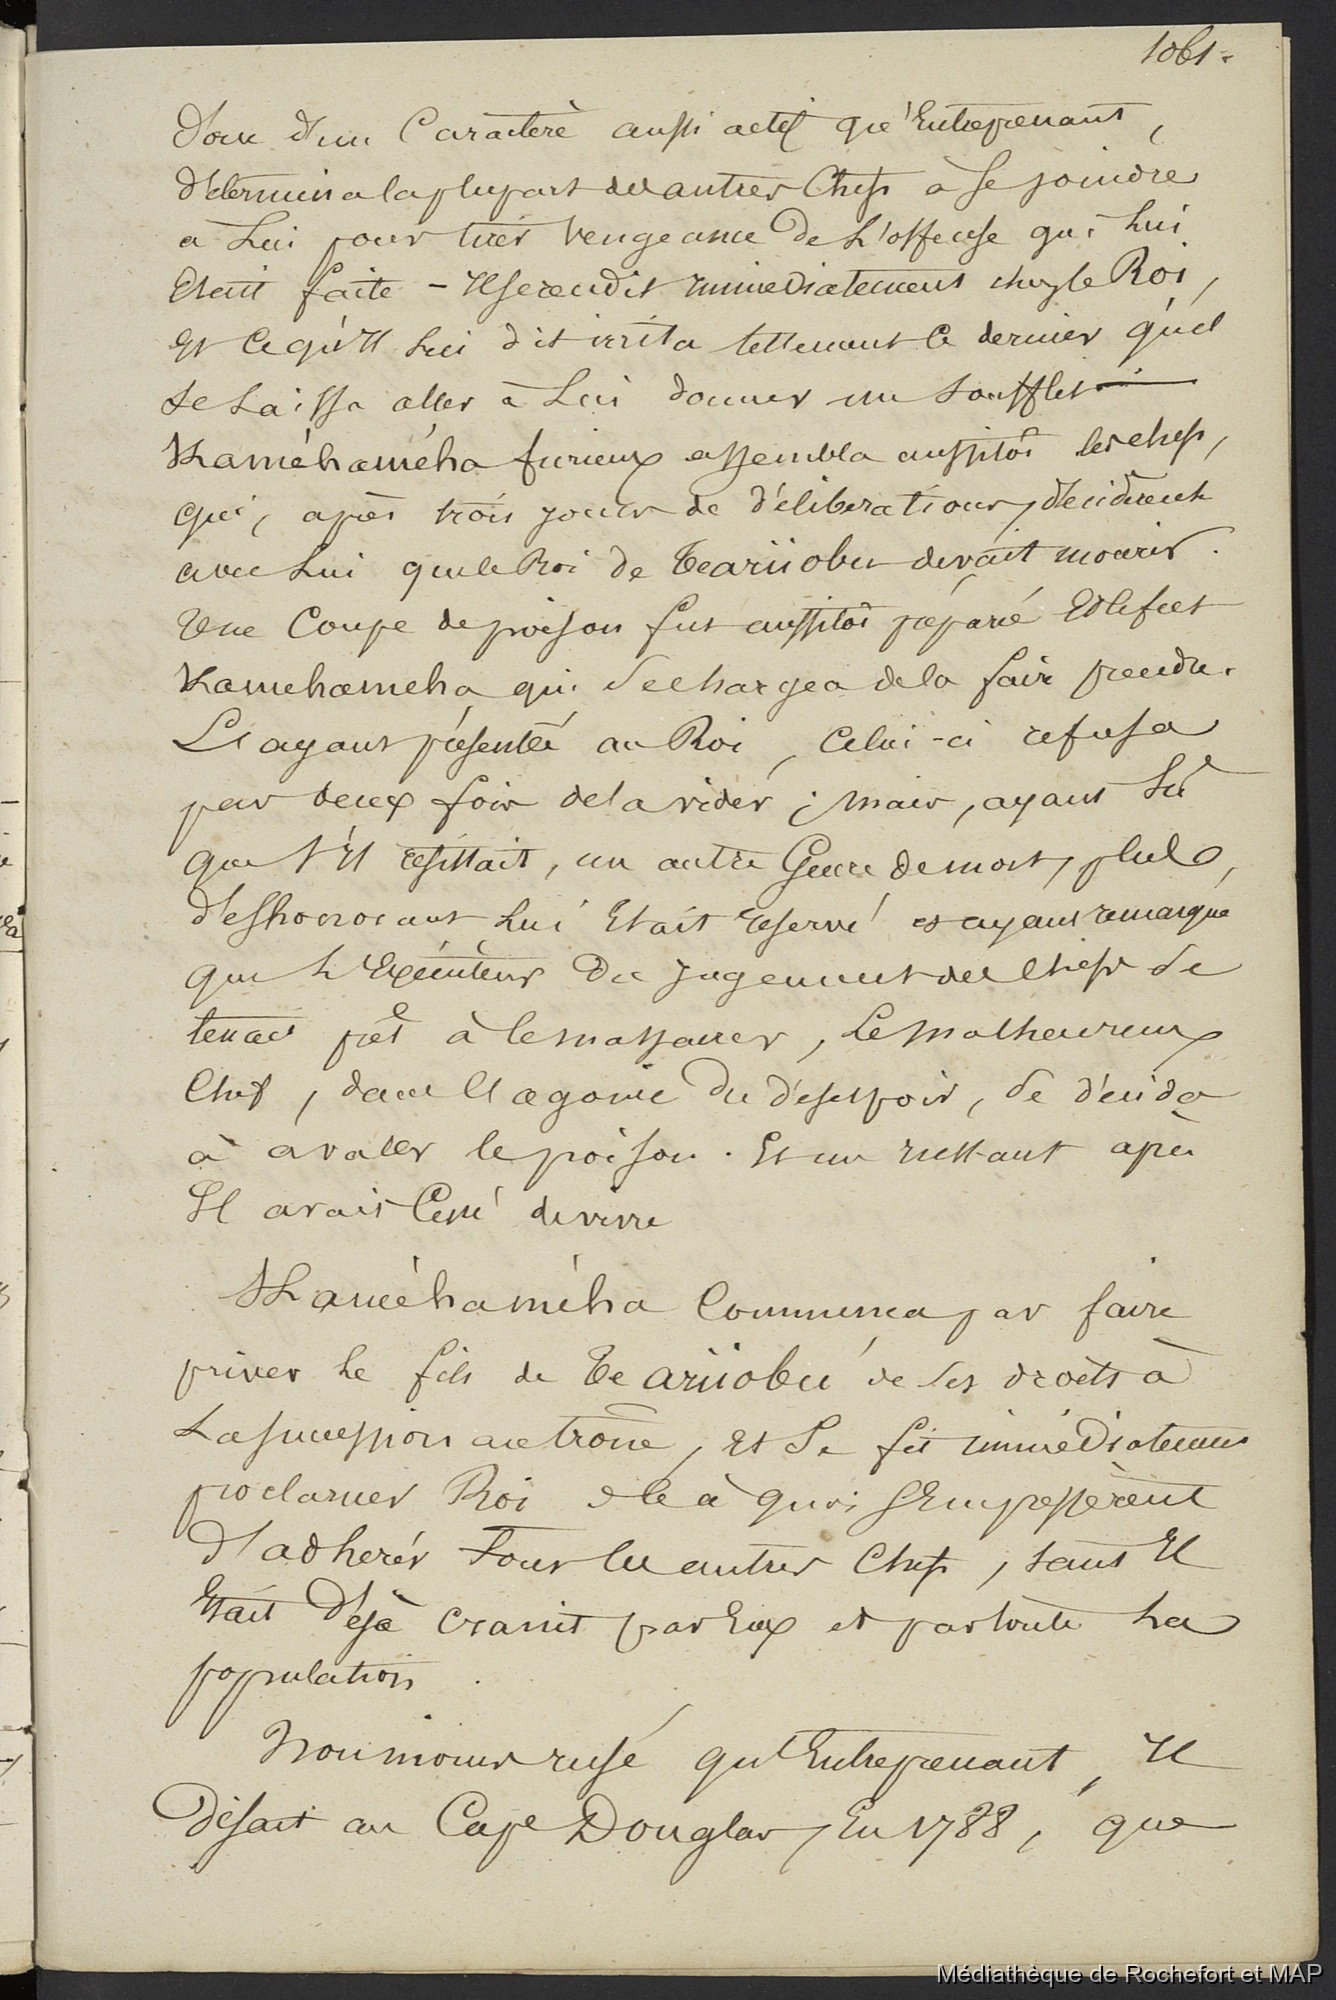 1061.
Doué d'un Caractère aussi actif qu'Entreprenant,
détermina la plupart des autres Chefs à se joindre
a Lui pour tirer vengeance de L'offense qui Lui
était faite – Il se rendit immédiatement chez le Roi,
Et Ce qu'Il Lui dit irrita tellement Ce dernier qu'il
se Laissa aller à Lui donner un soufflet —
Kaméhaméha furieux assembla aussitôt les chefs,
qui, après trois jours de délibérations, décidèrent
avec Lui que le Roi de Teariiobu devait mourir.
Une Coupe de poison fut aussitôt préparé Et le fut
Kamehameha qui se chargea de la faire prendre.
L'ayant présentée au Roi, Celui-ci refusa
par deux fois de la vider ; mais, ayant su
que s'Il résistait, un autre Genre de mort, plus,
deshonorant Lui Etait reservé et ayant remarqué
que L'Exécuteur du jugement des Chefs se
tenait prêt à le massacrer, Le malheureux
Chef, dans l'agonie du désespoir, se décida
à avaler le poison. Et un instant après
Il avait Cessé de vivre
Kaméhaméha Commença par faire
priver Le fils de Teariiobu de ses droits à
La succession au trône, Et Se fit immédiatement
proclamer Roi à quoi s'Empressèrent
d'adherér Tous les autres Chefs, tant Il
Etait déjà craint par Eux et par toute La
population.
Non moins rusé qu'Entreprenant, Il
disait au Cape Douglas, En 1788, que
Médiathèque de Rochefort et MAP